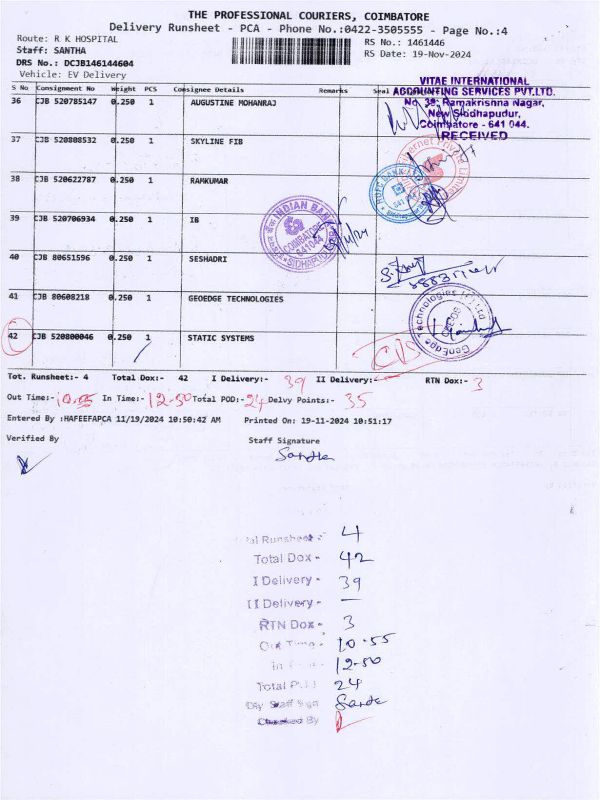 THE PROFESSIONAL COURIERS, COIMBATORE
Delivery Runsheet - PCA - Phone No.:0422-3505555 - Page No.:4
Route: R K HOSPITAL
RS No.: 1461446
Staff: SANTHA
RS Date: 19-Nov-2024
DRS No.: DCJB146144604
Vehicle: EV Delivery
VITAE INTERNATIONAL
ACCOUNTING SERVICES PVT.LTD.
No. 38, Ramakrishna Nagar,
New Sidhapudur,
Coimbatore - 641 044.
RECEIVED
S No Consignment No Weight PCS Consignee Details Remarks Seal
36 CJB 520785147 0.250 1 AUGUSTINE MOHANRAJ
37 CJB 520808532 0.250 1 SKYLINE FIB
38 CJB 520622787 0.250 1 RAMKUMAR
39 CJB 520706934 0.250 1 IB
INDIAN BANK
COIMBATORE
641044
SIDHAPUDUR
HDFC BANK
40 CJB 80651596 0.250 1 SESHADRI
41 CJB 80608218 0.250 1 GEOEDGE TECHNOLOGIES
GeoEdge Technologies (P) Ltd
42 CJB 520800046 0.250 1 STATIC SYSTEMS
Tot. Runsheet:- 4 Total Dox:- 42 I Delivery:- 39 II Delivery:- RTN Dox:- 3
Out Time:- 10.55 In Time:- 12-50 Total POD:- 24 Delvy Points:- 35
Entered By :HAFEEFAPCA 11/19/2024 10:50:42 AM Printed On: 19-11-2024 10:51:17
Verified By Staff Signature
Santha
Runsheet - 4
Total Dox - 42
I Delivery - 39
II Delivery - —
RTN Dox - 3
Out Time - 10-55
In 12-50
Total 24
Staff Sign
By